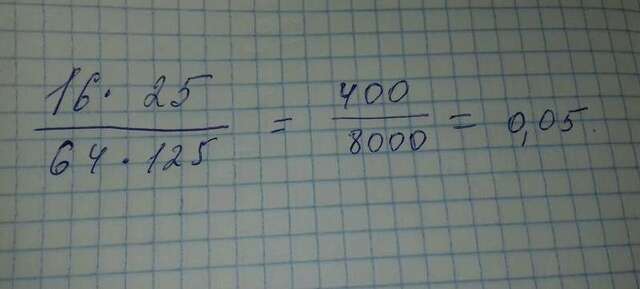 16 · 25 / 64 · 125 = 400 / 8000 = 0,05.